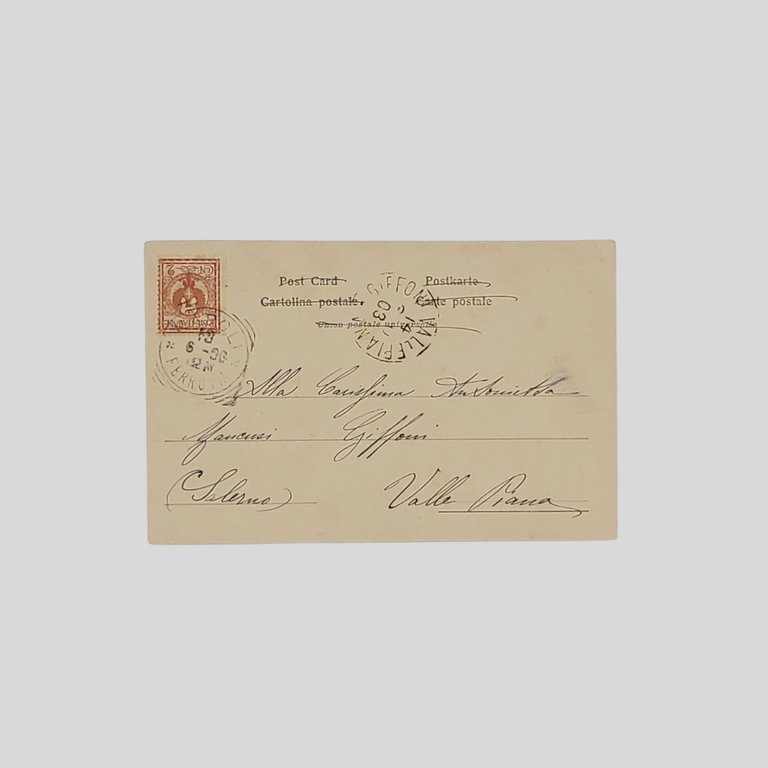 Post Card
Postkarte
Cartolina postale.
Carte postale
Union postale universelle
GIFFONI VALLE PIANA
14
03
FERROVIA
Alla Carissima Antonietta
Mancusi Giffoni
(Salerno) Valle Piana